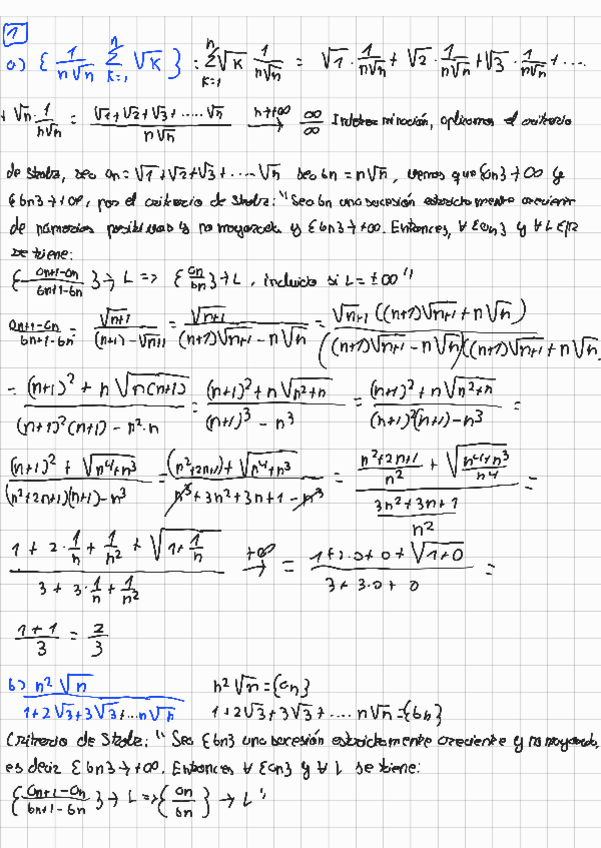 1
a) { 1/(n√n) ∑_{k=1}^{n} √k } : ∑_{k=1}^{n} √k 1/(n√n) = √1 · 1/(n√n) + √2 · 1/(n√n) + √3 · 1/(n√n) + ....
+ √n · 1/(n√n) = (√1+√2+√3+.....√n)/(n√n) n→+∞ → ∞/∞ Indeterminación, aplicamos el criterio
de Stolz, sea an = √1+√2+√3+....√n sea bn = n√n, vemos que {an} → ∞ y
{bn} → +∞, por el criterio de Stolz: "Sea bn una sucesión estrictamente creciente
de números positivos y no mayorada y {bn} → +∞. Entonces, ∀ {an} y ∀ L ∈ ℝ
se tiene:
{ (an+1-an)/(bn+1-bn) } → L => { an/bn } → L, incluido si L = ±∞"
(an+1-an)/(bn+1-bn) = √n+1/((n+1)-√n+1) = √n+1/((n+1)√n+1 - n√n) = √n+1 ((n+1)√n+1 + n√n)/((n+1)√n+1 - n√n)((n+1)√n+1 + n√n)
= ((n+1)² + n√n(n+1))/((n+1)²(n+1) - n²·n) = ((n+1)² + n√n²+n)/((n+1)³ - n³) = ((n+1)² + n√n²+n)/((n+1)²(n+1) - n³) =
((n+1)² + √n⁴+n³)/((n²+2n+1)(n+1) - n³) = ((n²+2n+1) + √n⁴+n³)/(n³+3n²+3n+1-n³) = ((n²+2n+1)/n² + √(n⁴+n³)/n⁴)/((3n²+3n+1)/n²) =
(1 + 2·1/n + 1/n² + √1+1/n)/(3 + 3·1/n + 1/n²) +∞ → = (1+2·0+0+√1+0)/(3+3·0+0) =
(1+1)/3 = 2/3
b) n²√n/(1+2√3+3√3+...n√n) n²√n = {an}
1+2√3+3√3+....n√n = {bn}
Criterio de Stolz: "Sea {bn} una sucesión estrictamente creciente y no mayorada,
es decir {bn} → +∞. Entonces ∀ {an} y ∀ L se tiene:
{ (an+1-an)/(bn+1-bn) } → L => { an/bn } → L"